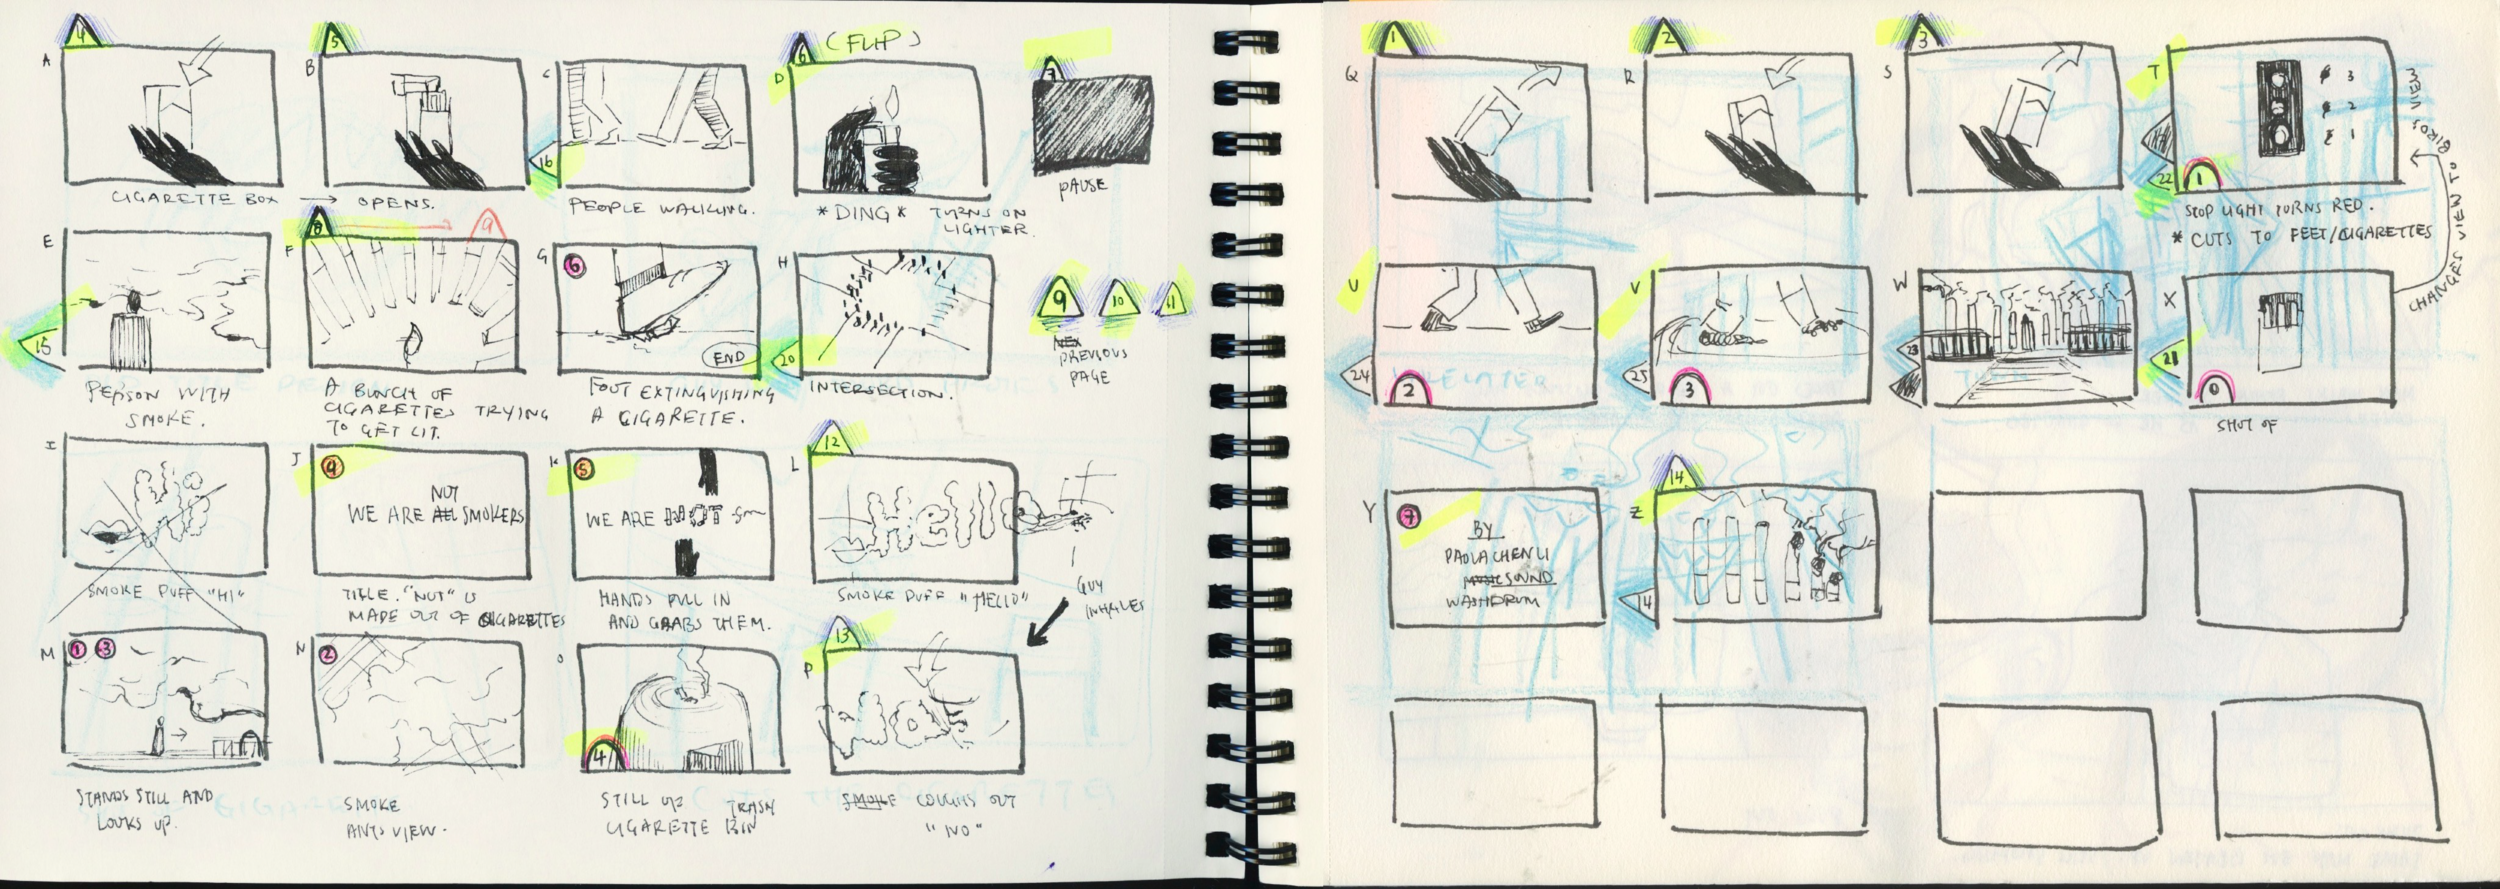 4
A
5
B
C
6
(FLIP)
D
7
16
CIGARETTE BOX → OPENS.
PEOPLE WALKING.
*DING* TURNS ON
LIGHTER.
PAUSE
E
8
9
F
G
6
END
H
15
20
9
10
11
PREVIOUS
PAGE
PERSON WITH
SMOKE.
A BUNCH OF
CIGARETTES TRYING
TO GET LIT.
FOOT EXTINGUISHING
A CIGARETTE.
INTERSECTION.
I
J
4
NOT
WE ARE ALL SMOKERS
K
5
WE ARE NOT SM
L
12
Hello
SMOKE PUFF "HI"
TITLE. "NOT" IS
MADE OUT OF CIGARETTES
HANDS PULL IN
AND GRABS THEM.
SMOKE PUFF "HELLO"
GUY
INHALES
M
1
3
N
2
O
4
13
P
STANDS STILL AND
LOOKS UP.
SMOKE
ANTS VIEW.
STILL OF TRASH
CIGARETTE BIN
SMOKE COUGHS OUT
"NO"
1
Q
2
R
3
S
T
3
2
1
22
1
STOP LIGHT TURNS RED.
* CUTS TO FEET/CIGARETTES
CHANGES VIEW TO BIRDS VIEW
U
24
2
V
25
3
W
23
X
21
0
SHOT OF
Y
7
BY
PAOLA CHEN LI
MUSIC SOUND
WASHDRUM
14
Z
14